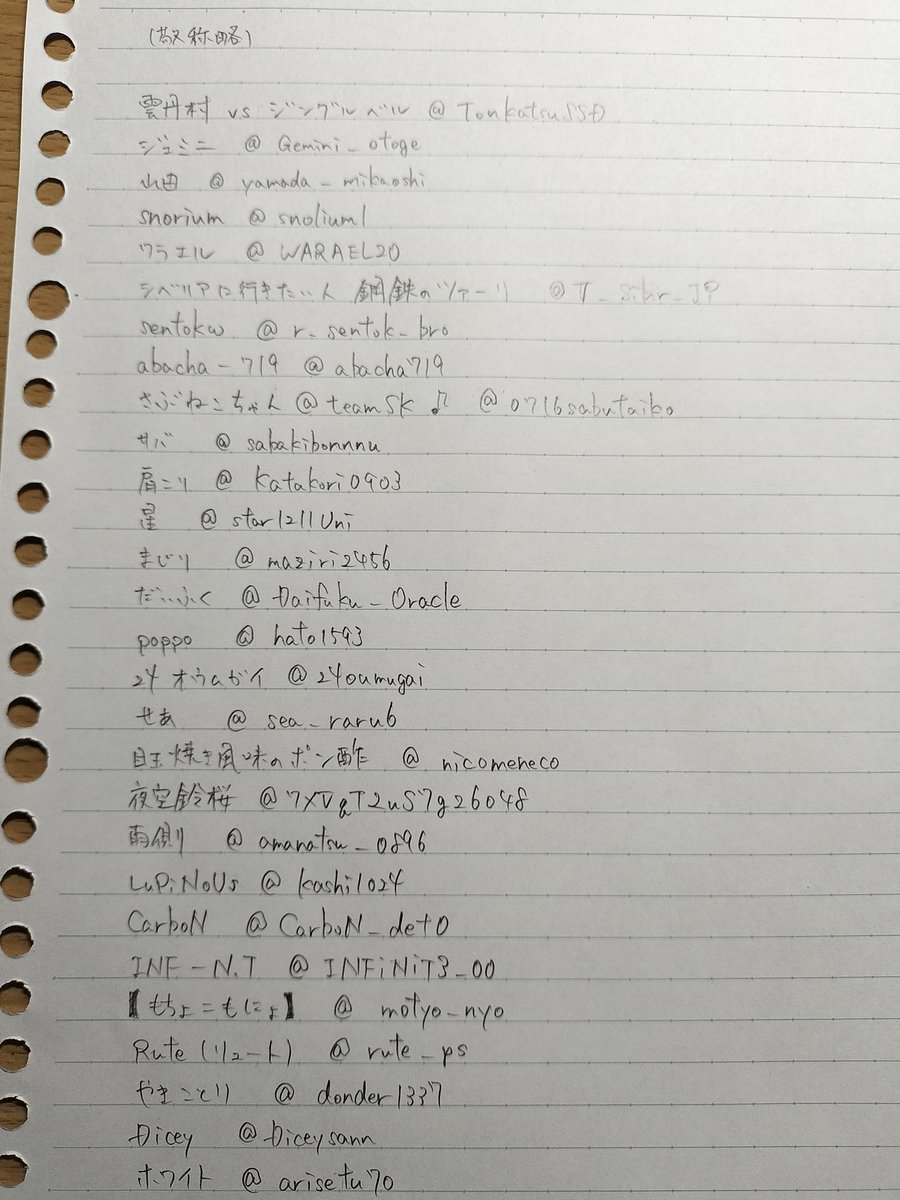 (敬称略)
雲丹村 vs ジングルベル @TonkatsuSSD
ジェミニ @Gemini_otoge
山田 @yamada_mikaoshi
snorium @snolium1
ワラエル @WARAEL20
シベリアに行きたい人 鋼鉄のツァーリ @T_Sibir_JP
sentokω @r_sentok_bro
abacha-719 @abacha719
さぶねこちゃん@teamSK♪ @0716sabutaiko
サバ @sabakibonnnu
肩こり @katakori0903
星 @star1211Uni
まじり @maziri2456
だいふく @Daifuku_Oracle
poppo @hato1593
24オウムガイ @24oumugai
せあ @sea_raru6
目玉焼き風味のポン酢 @nicomeneco
夜空鈴桜 @7XVqT2uS7g26048
雨側り @amanatsu_0896
LuPiNoUs @kashi1024
CarboN @CarboN_det0
INF-N.T @INFiNiT3_00
【もちょこもにょ】 @motyo_nyo
Rute (リュート) @rute_ps
やまことり @donder1337
Dicey @Diceysann
ホワイト @arisetu70